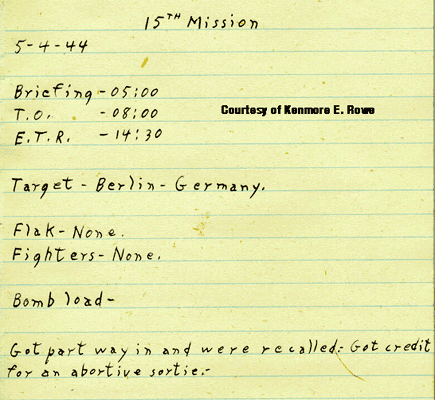 15TH Mission
5-4-44
Briefing - 05:00
T.O. - 08:00
Courtesy of Kenmore E. Rowe
E.T.R. - 14:30
Target - Berlin - Germany.
Flak - None.
Fighters - None.
Bomb load -
Got part way in and were recalled.- Got credit
for an abortive sortie.-